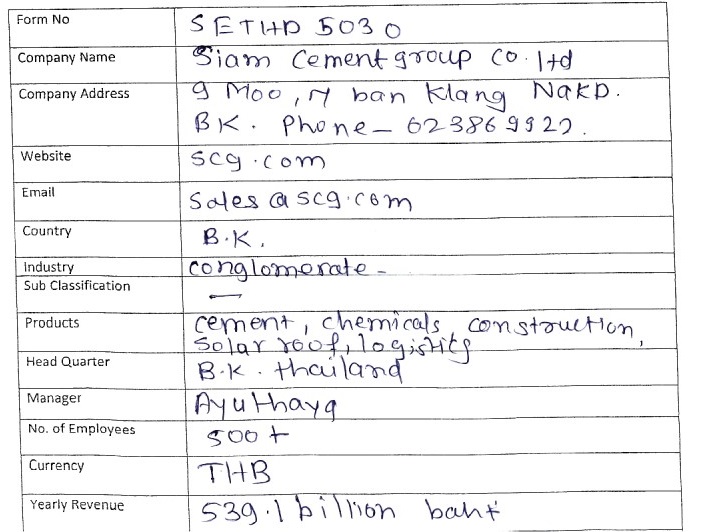 Form No SETHD 5030
Company Name Siam Cement group co. ltd
Company Address 9 Moo, 7 ban Klang Nakp.
BK. Phone - 623869922.
Website scg.com
Email sales@scg.com
Country B.K,
Industry conglomerate -
Sub Classification —
Products cement, chemicals, construction,
Solar roof, logistics
Head Quarter B.K. thailand
Manager Ayuthaya
No. of Employees 500+
Currency THB
Yearly Revenue 539.1 billion baht